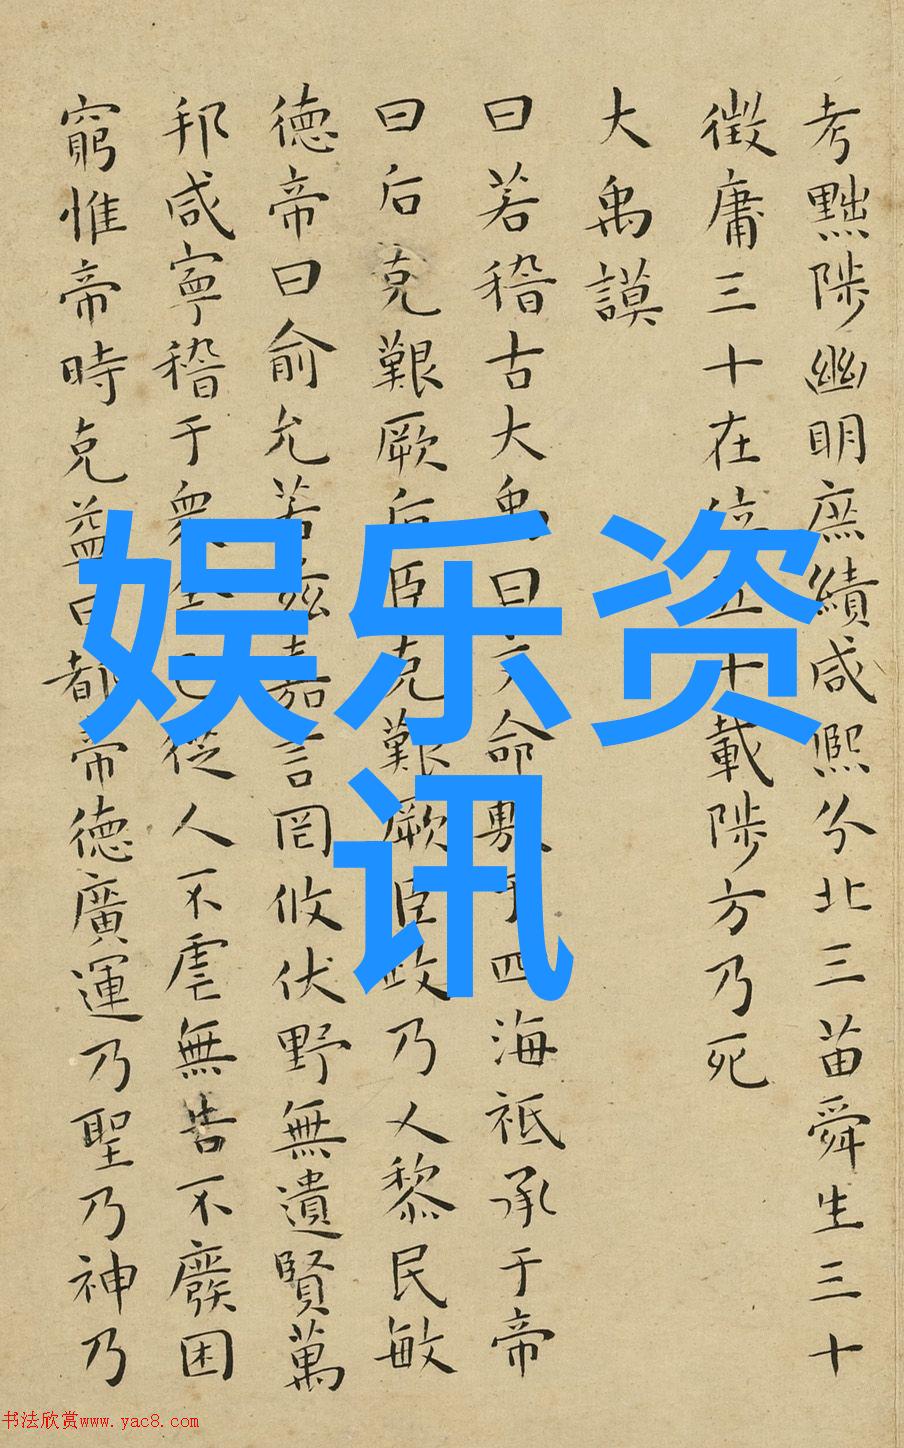 考黜陟幽明庶績咸熙分北三苗舜生三十
徵庸三十在位五十載陟方乃死
大禹謨
曰若稽古大禹曰文命敷于四海祗承于帝
曰后克艱厥后臣克艱厥臣政乃乂黎民敏
德帝曰俞允若茲嘉言罔攸伏野無遺賢萬
邦咸寧稽于衆舍己從人不虐無告不廢困
窮惟帝時克益曰都帝德廣運乃聖乃神乃
娱乐资
讯
书法欣赏www.yac8.com